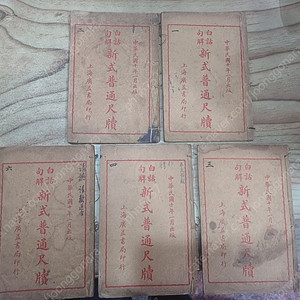 二
白話
句解
新式普通尺牘
中華民國十年一月出版
上海廣益書局印行
一
白話
句解
新式普通尺牘
中華民國十年一月出版
上海廣益書局印行
六
白話
句解
新式普通尺牘
中華民國十年一月出版
上海廣益書局印行
四
白話
句解
新式普通尺牘
中華民國十年一月出版
上海廣益書局印行
三
白話
句解
新式普通尺牘
中華民國十年一月出版
上海廣益書局印行